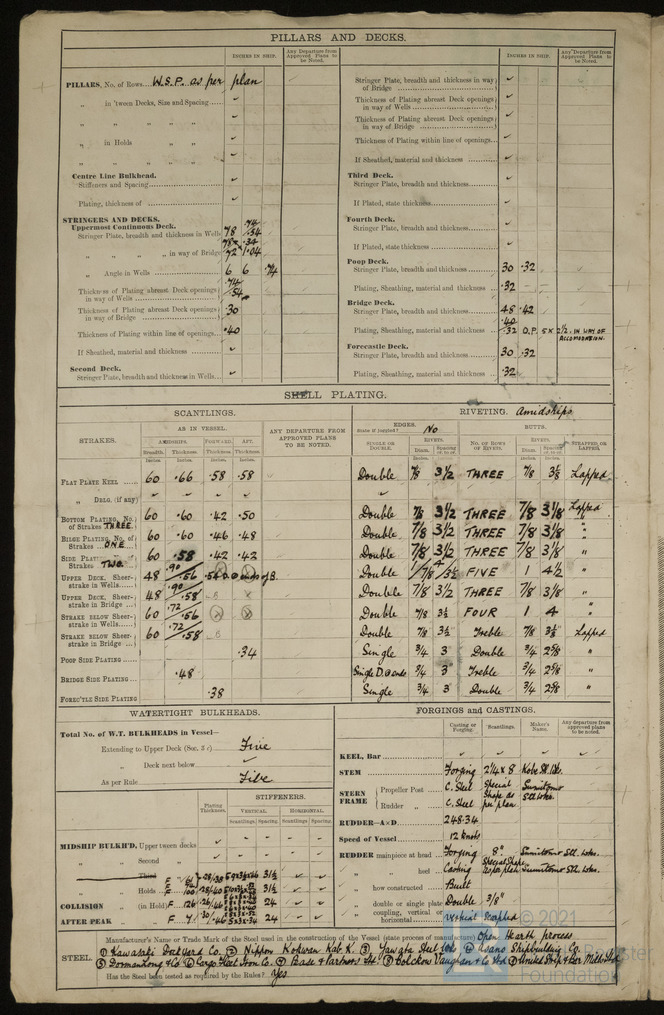 PILLARS AND DECKS.
INCHES IN SHIP.
Any Departure from Approved Plans to be Noted.
INCHES IN SHIP.
Any Departure from Approved Plans to be Noted.
PILLARS, No. of Rows.... W.S.P. as per plan
„ in 'tween Decks, Size and Spacing
„ „ „ „
„ in Holds „ „
„ „ „ „
Centre Line Bulkhead.
Stiffeners and Spacing
Plating, thickness of
STRINGERS AND DECKS.
Uppermost Continuous Deck.
Stringer Plate, breadth and thickness in Wells 78 .74 .54
„ „ „ „ in way of Bridge
„ Angle in Wells 6 6 .74
Thickness of Plating abreast Deck openings in way of Wells .74 .54
Thickness of Plating abreast Deck openings in way of Bridge .30
Thickness of Plating within line of openings .40
If Sheathed, material and thickness
Second Deck.
Stringer Plate, breadth and thickness in Wells
Stringer Plate, breadth and thickness in way of Bridge
Thickness of Plating abreast Deck openings in way of Wells
Thickness of Plating abreast Deck openings in way of Bridge
Thickness of Plating within line of openings
If Sheathed, material and thickness
Third Deck.
Stringer Plate, breadth and thickness
If Plated, state thickness
Fourth Deck.
Stringer Plate, breadth and thickness
If Plated, state thickness
Poop Deck.
Stringer Plate, breadth and thickness 30 .32
Plating, Sheathing, material and thickness .32
Bridge Deck.
Stringer Plate, breadth and thickness 48 .42
Plating, Sheathing, material and thickness .40 .32 O.P. 5 x 2½ IN WAY OF ACCOMODATION.
Forecastle Deck.
Stringer Plate, breadth and thickness 30 .32
Plating, Sheathing, material and thickness .32
SHELL PLATING.
SCANTLINGS.
RIVETING. Amidships
STRAKES.
AS IN VESSEL.
AMIDSHIPS. FORWARD. AFT.
Breadth. Thickness. Thickness. Thickness.
Inches. Inches. Inches. Inches.
ANY DEPARTURE FROM APPROVED PLANS TO BE NOTED.
EDGES.
State if joggled? No
SINGLE OR DOUBLE.
RIVETS.
Diam. Spacing
BUTTS.
NO. OF ROWS OF RIVETS.
RIVETS.
Diam. Spacing
STRAPPED OR LAPPED.
FLAT PLATE KEEL 60 .66 .58 .58 Double 7/8 3½ THREE 7/8 3⅛ Lapped
„ DBLG. (if any)
BOTTOM PLATING, No. of Strakes THREE 60 .60 .42 .50 Double 7/8 3½ THREE 7/8 3⅛ Lapped
BILGE PLATING, No. of Strakes ONE 60 .60 .46 .48 Double 7/8 3½ THREE 7/8 3⅛ „
SIDE PLATING, No. of Strakes TWO 60 .58 .42 .42 Double 7/8 3½ THREE 7/8 3⅛ „
UPPER DECK, Sheerstrake in Wells 48 .90 .56 Double FIVE 1 4½ „
UPPER DECK, Sheerstrake in Bridge 48 .90 .58 Double 7/8 3½ THREE 7/8 3⅛ „
STRAKE BELOW SHEERstrake in Wells 60 .72 .56 Double 7/8 3½ FOUR 1 4 „
STRAKE BELOW SHEERstrake in Bridge 60 .72 .58 Double 7/8 3½ Treble 7/8 3⅛ Lapped
POOP SIDE PLATING .34 Single 3/4 3 Double 3/4 2⅝ „
BRIDGE SIDE PLATING .48 Single D. @ ends 3/4 3 Treble 3/4 2⅝ „
FOREC'TLE SIDE PLATING .38 Single 3/4 3 Double 3/4 2⅝ „
WATERTIGHT BULKHEADS.
Total No. of W.T. BULKHEADS in Vessel—
Extending to Upper Deck (Sec. 3 c) Five
„ Deck next below
As per Rule Five
Plating Thickness.
STIFFENERS.
VERTICAL. HORIZONTAL.
Scantlings. Spacing. Scantlings. Spacing.
MIDSHIP BULKH'D, Upper tween decks
„ „ Second „
„ „ Third „
„ „ Holds
COLLISION „ (in Hold)
AFTER PEAK „
FORGINGS and CASTINGS.
Casting or Forging. Scantlings. Maker's Name. Any departure from approved plans to be noted.
KEEL, Bar
STEM Forging 2¼ x 8
STERN FRAME
Propeller Post C. Steel Special Shape as per plan Sumitomo Stl. Wks.
Rudder „ C. Steel
RUDDER—A×D 248.34
Speed of Vessel 12 knots
RUDDER mainpiece at head Forging 8" Sumitomo Stl. Wks.
„ „ heel Casting Special Shape as per plan Sumitomo Stl. Wks.
„ how constructed Built
„ double or single plate Double 3/8"
„ coupling, vertical or horizontal
STEEL.
Manufacturer's Name or Trade Mark of the Steel used in the construction of the Vessel (state process of manufacture) Open Hearth process
① Kawasaki Dockyard Co. ② Nippon Kokwan Kab. K. ③ Yawata Steel Wks ④ Asano Shipbuilding Co.
⑤ Dorman Long & Co ⑥ Cargo Fleet Iron Co. ⑦
Has the Steel been tested as required by the Rules? Yes
© 2021
Foundation